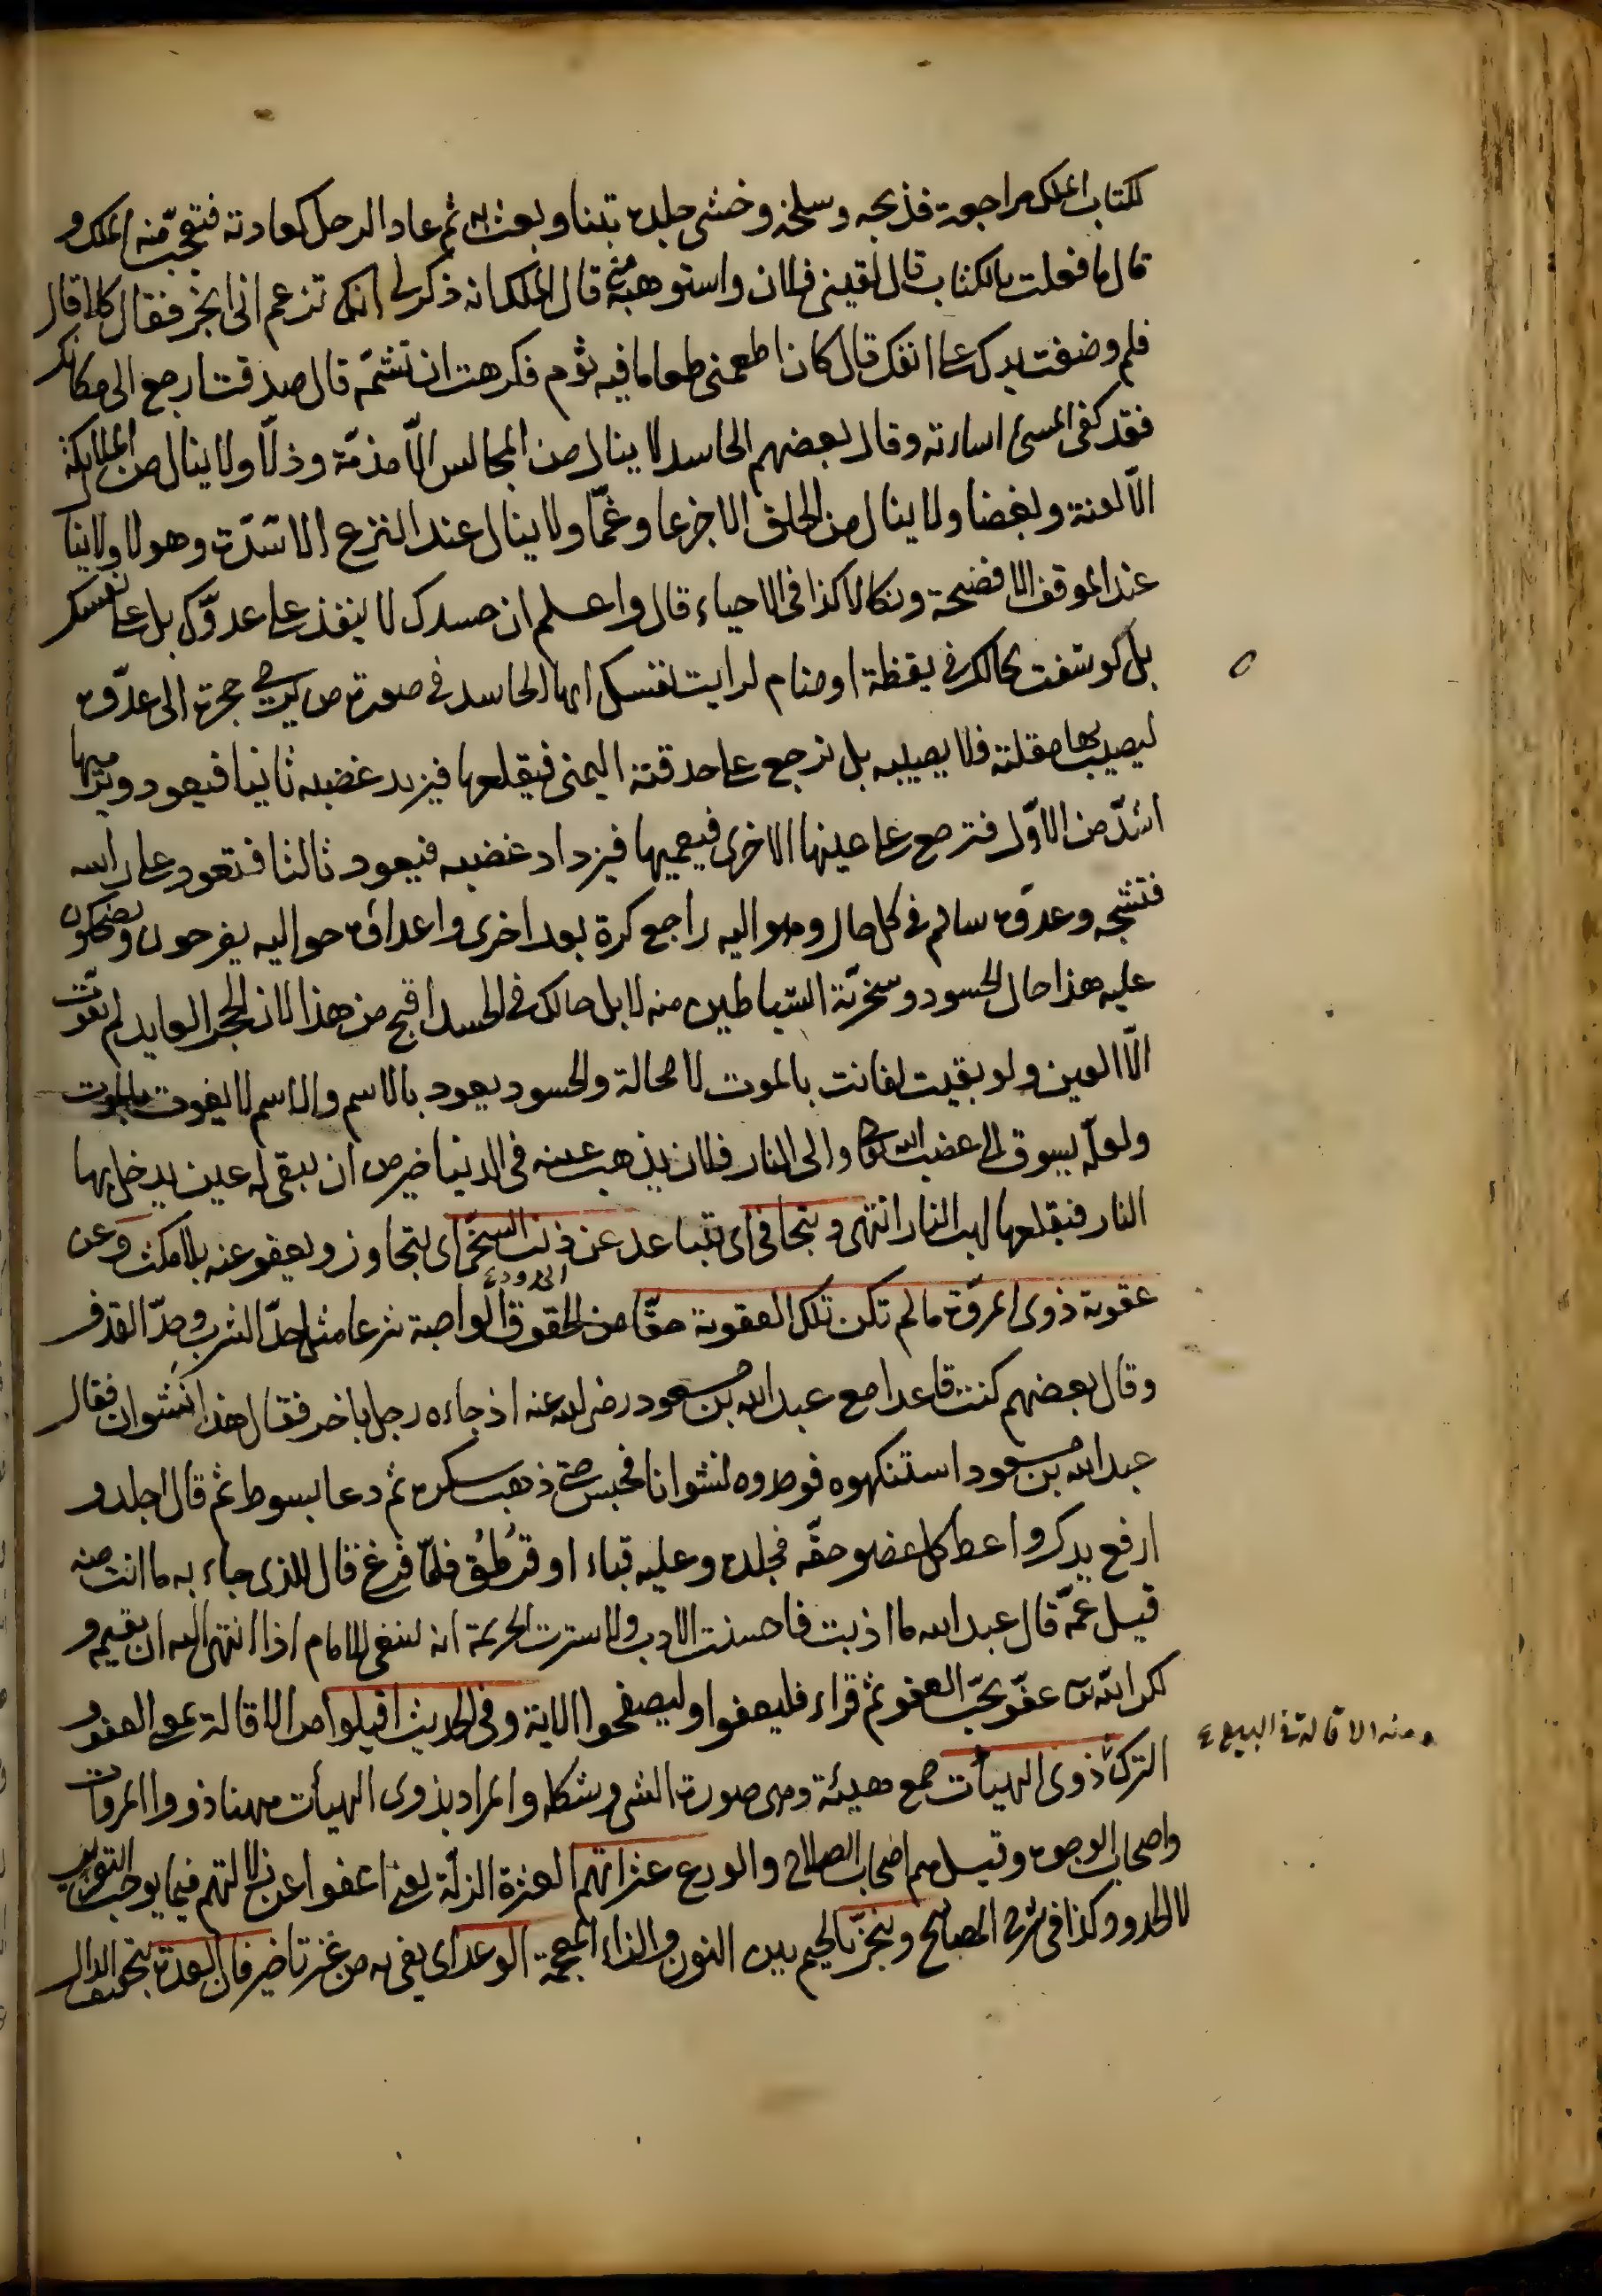 لكتاب الملك مراجعة فذبحه وسلخه وخشى جلده تبنا وبعث به ثم عاد الرجل كعادته فتعجّب منه الملك و
قال ما فعلت بالكتاب قال لقينى فلان واستوهبه منى قال الملك انه ذكر لى انك تزعم انى ابخر فقال كلا قال
فلم وضعت يدك على انفك قال كان اطعمنى طعاما فيه ثوم فكرهت ان تشمّه قال صدقت ارجع الى مكانك
فقد كفى المسئ اساءته وقال بعضهم الحاسد لا ينال من المجالس الّا مذمّة وذلّا ولا ينال من الملائكة
الّا لعنة وبغضا ولا ينال من الخلق الا جزعا وغمّا ولا ينال عند النزع الا شدّة وهولا ولا ينال
عند الموقف الا فضيحة ونكالا كذا فى الاحياء قال واعلم ان حسدك لا ينفذ على عدوّك بل على نفسك
بل كوشفت بحالك فى يقظة او منام لرايت نفسك ايها الحاسد فى صورة من يرمى حجرة الى عدوّه
ليصيب بها مقلته فلا يصيبه بل ترجع على حدقته اليمنى فيقلعها فيزيد غضبه ثانيا فيعود ويرميها
اشدّ من الاوّل فترجع على عينها الاخرى فيعميها فيزداد غضبه فيعود ثالثا فتعود على راسه
فتشجه وعدوّه سالم فى كل حال وهو اليه راجع كرة بعد اخرى واعداؤه حواليه يفرحون ويضحكون
عليه هذا حال الحسود وسخريّة الشياطين منه لا بل حالك فى الحسد اقبح من هذا لان الحجر العايد لم تفوّت
الّا العين ولو بقيت لفاتت بالموت لا محالة والحسود يعود بالاسم والاسم لا يفوت بالموت
ولعلّه يسوق الى غضب الله تعالى والى النار فلان يذهب عينه فى الدنيا خير من ان يبقى له عين يدخل بها
النار فيقلعها لهب النار انتهى ويتجافى اى يتباعد عن ذنب السخىّ اى يتجاوز ويعفو عنه بلا مكث وعن
عقوبة ذوى المروّة ما لم تكن تلك العقوبة حقّا من الحقوق الحدود الواجبة شرعا مثل حدّ الشرب وحدّ القذف
وقال بعضهم كنت قاعدا مع عبد الله بن مسعود رضى الله عنه اذ جاءه رجل باخر فقال هذا نشوان فقال
عبد الله بن مسعود استنكهوه فوجدوه نشوانا فحبس حتى ذهب سكره ثم دعا بسوط ثم قال اجلد و
ارفع يدك واعط كل عضو حقّه فجلده وعليه قباء او قرطق فلمّا فرغ قال للذى جاء به ما انت منه
قيل عمّه قال عبد الله ما ادبت فاحسنت الادب ولا سترت الحرمة انه ينبغى للامام اذا انتهى اليه ان يقيمه و
لكن الله عفوّ يحبّ العفو ثم قراء فليعفوا وليصفحوا الاية وفى الحديث اقيلوا من الاقالة بمعنى العفو و
الترك ذوى الهيأت جمع هيئة وهى صورة الشئ وشكله والمراد بذوى الهيأت ههنا ذووا المروات
ومنه الاقالة فى البيع
واصحاب الوجوه وقيل هم اصحاب الصلاح والورع عثراتهم العثرة الزلّة يعنى اعفوا عن زلّاتهم فيما يوجب التعزير
لا الحدود كذا فى شرح المصابيح وينجز بالجيم بين النون والزاء المعجمة الوعد اى يفى به من غير تاخير فان العدة بتخفيف الدال